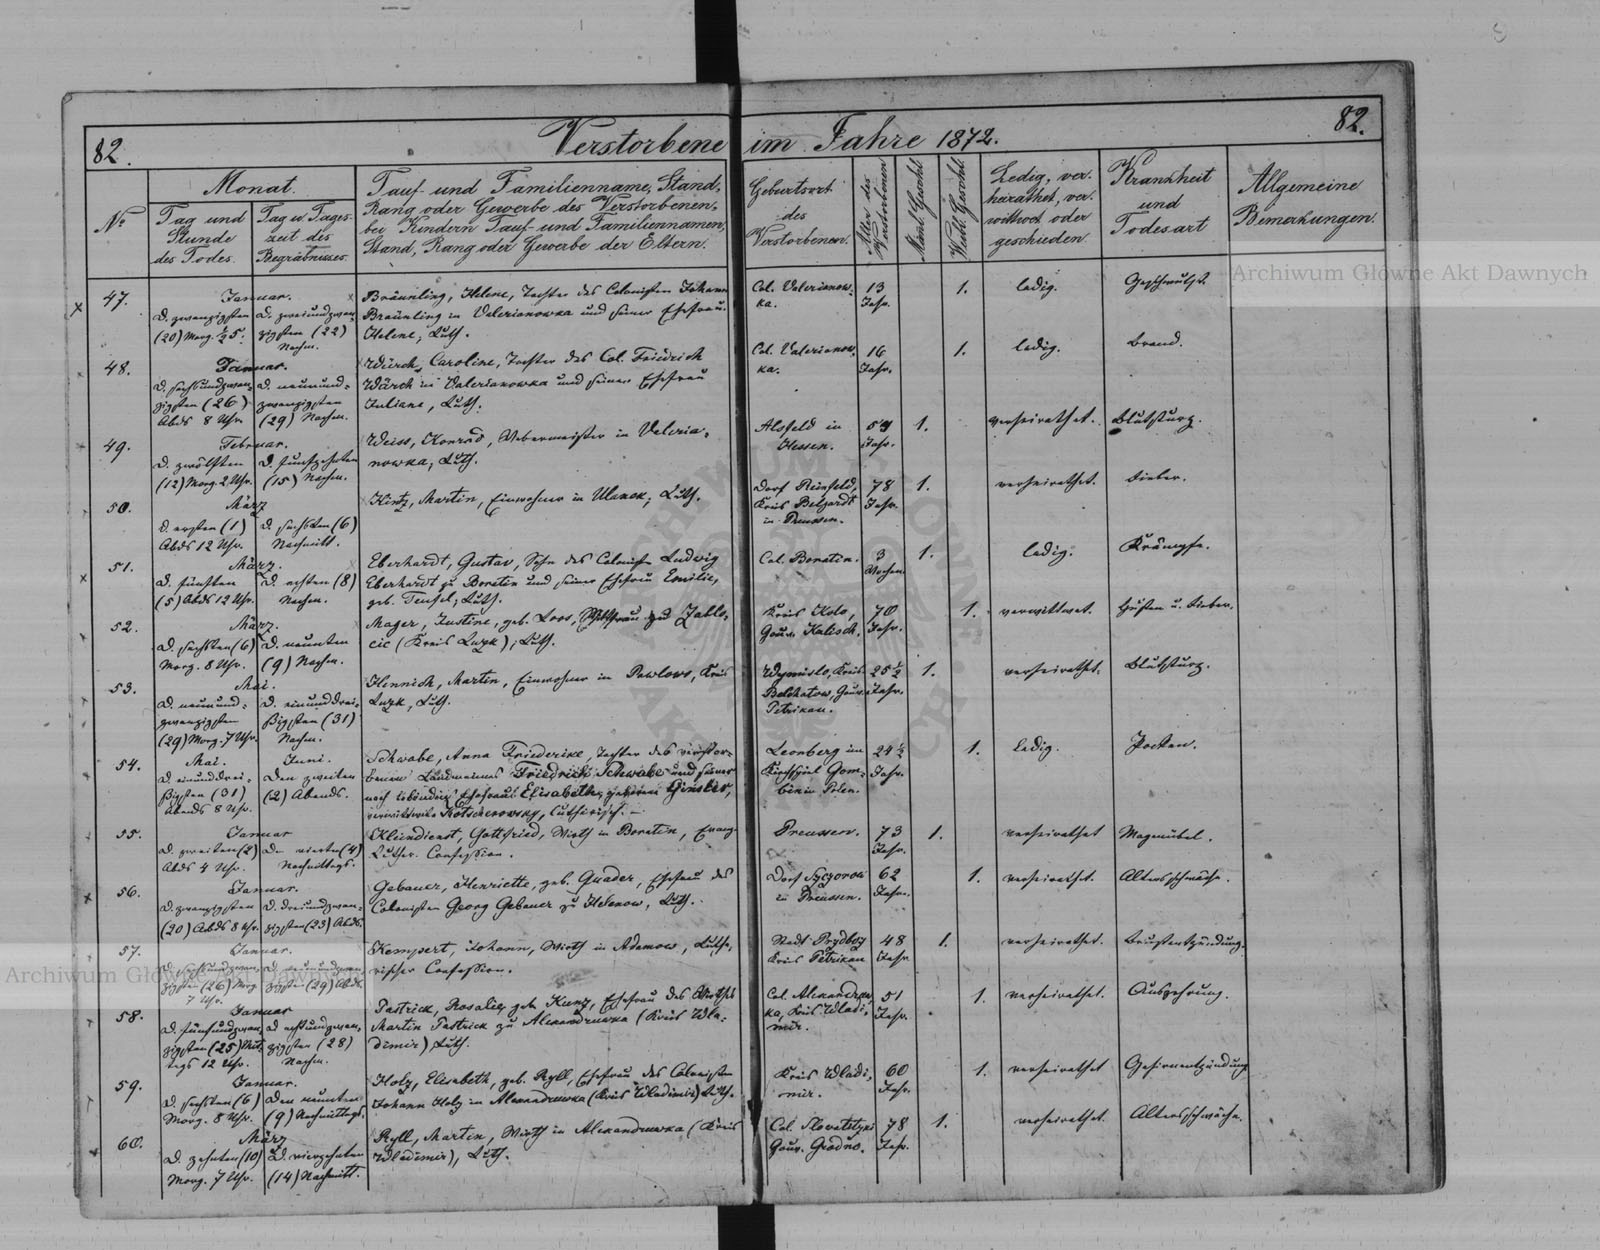 82.
Verstorbene im Jahre 1872.
82.
No
Monat.
Tag und Stunde des Todes.
Tag u. Tageszeit des Begräbnisses.
Tauf- und Familienname, Stand,
Rang oder Gewerbe des Verstorbenen,
bei Kindern Tauf- und Familiennamen,
Stand, Rang oder Gewerbe der Eltern.
Geburtsort
des
Verstorbenen.
Alter des Verstorbenen
Männl. Geschl.
Weibl. Geschl.
Ledig, ver-
heirathet, ver-
wittwet oder
geschieden.
Krankheit
und
Todesart
Allgemeine
Bemerkungen.
47.
Januar.
d. zwanzigsten
(20) Morg.
d. zweiundzwan-
zigsten (22)
Nachm.
Bräunling, Helene, Tochter des Colonisten Johann
Bräunling in Valerianowka und seiner Ehefrau
Helene, Luth.
Col. Valerianow-
ka.
13
Jahr.
1.
ledig.
Geschwulst.
48.
Januar.
d. sechsundzwan-
zigsten (26)
Abds 8 Uhr
d. neunund-
zwanzigsten
(29) Nachm.
Caroline, Tochter des Col. Friedrich
in Valerianowka und seiner Ehefrau
Juliane, Luth.
Col. Valerianow-
ka.
16
Jahr.
1.
ledig.
Brand.
49.
Februar.
d. zwölften
(12) Morg. 2 Uhr.
d. funfzehnten
(15) Nachm.
Weiss, Konrad, Webermeister in Valeria-
nowka, Luth.
Alsfeld in
Hessen.
Jahr.
1.
verheirathet.
Blutsturz.
50.
März
d. ersten (1)
Abds 12 Uhr.
d. sechsten (6)
Nachmitt.
Kintz, Martin, Einwohner in Ulanek, Luth.
Dorf Reinfeld,
Kreis Belgardt
in Preussen.
78
Jahr.
1.
verheirathet.
Fieber.
51.
März.
d. fünften
(5) Abds 12 Uhr.
d. achten (8)
Nachm.
Eberhardt, Gustav, Sohn des Colonisten Ludwig
Eberhardt zu Boratin und seiner Ehefrau Emilie,
geb. Teufel, Luth.
Col. Boratin.
3
Wochen
1.
ledig.
Krämpfe.
52.
März.
d. sechsten (6)
Morg. 8 Uhr.
d. neunten
(9) Nachm.
Mager, Justine, geb. Loos, Wittfrau zu Jablo-
cic (Kreis Luzk), Luth.
Kreis Kolo,
Gouv. Kalisch.
70
Jahr.
1.
verwittwet.
Husten u. Fieber.
53.
Mai.
d. neunund-
zwanzigsten
(29) Morg. 7 Uhr.
d. einunddrei-
ßigsten (31)
Nachm.
Hennich, Martin, Einwohner in Pawlow, Kreis
Luzk, Luth.
Kreis
Belchatow, Gouv.
Petrikau.
25 1/2
Jahr.
1.
verheirathet.
Blutsturz.
54.
Mai.
d. einunddrei-
ßigsten (31)
Abends 8 Uhr.
Juni.
Den zweiten
(2) Abends.
Schwabe, Anna Friederike, Tochter des verstor-
benen Landmannes Friedrich Schwabe und seiner
noch lebenden Ehefrau Elisabeth, geborene Ginster,
verwittwete Kotscherowsky, Lutherisch.
Leonberg im
Kirchspiel Gom-
bin in Polen.
24 1/2
Jahr.
1.
ledig.
Pocken.
55.
Januar
d. zweiten (2)
Abds 4 Uhr.
Den vierten (4)
Nachmittags.
Kleindienst, Gottfried, Wirth in Boratin, Evang.
Luther. Confession.
Preussen.
73
Jahr.
1.
verheirathet
Magenübel.
56.
Januar.
d. zwanzigsten
(20) Abds 8 Uhr.
d. dreiundzwan-
zigsten (23) Abds.
Gebauer, Henriette, geb. Quader, Ehefrau des
Colonisten Georg Gebauer zu Helenow, Luth.
Dorf
in Preussen.
62
Jahr.
1.
verheirathet.
Altersschwäche.
57.
Januar.
d. sechsundzwan-
zigsten (26) Morg.
7 Uhr.
d. neunundzwan-
zigsten (29) Abds.
Kempert, Johann, Wirth in Adamow, Luthe-
rischer Confession.
Stadt
Kreis Petrikau
48
Jahr
1.
verheirathet.
Brustentzündung.
58.
Januar
d. fünfundzwan-
zigsten (25) Mit-
tags 12 Uhr.
d. achtundzwan-
zigsten (28)
Nachm.
Pastrick, Rosalie, geb. Kunz, Ehefrau des Wirthes
Martin Pastrick zu Alexandruwka (Kreis Wla-
dimir), Luth.
Col. Alexandruw-
ka, Kreis Wladi-
mir.
51
Jahr.
1.
verheirathet.
Auszehrung.
59.
Januar.
d. sechsten (6)
Morg. 8 Uhr.
Den neunten
(9) Nachmittags.
Holz, Elisabeth, geb. Ryll, Ehefrau des Colonisten
Johann Holz in Alexandruwka (Kreis Wladimir) Luth.
Kreis Wladi-
mir.
60
Jahr.
1.
verheirathet
Gehirnentzündung
60.
März
d. zehnten (10)
Morg. 7 Uhr.
D. vierzehnten
(14) Nachmitt.
Ryll, Martin, Wirth in Alexandruwka (Kreis
Wladimir), Luth.
Col. Slovatitzki
Gouv. Grodno.
78
Jahr.
1.
verheirathet.
Altersschwäche.
Archiwum Główne Akt Dawnych
Archiwum Główne Akt Dawnych